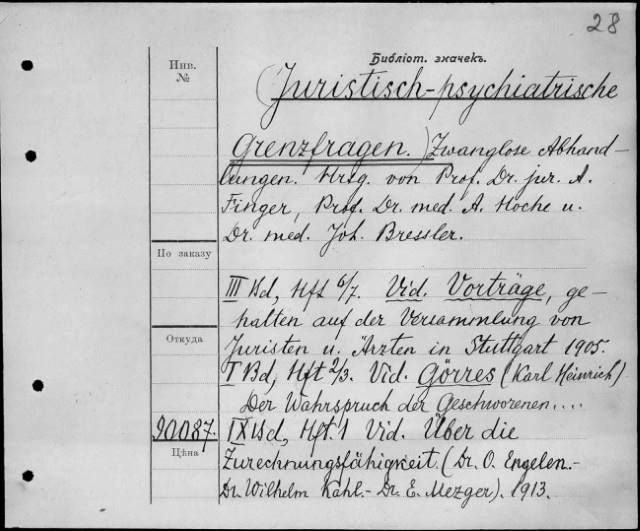 28
Библіот. значекъ.
Инв.
№
(Juristisch-psychiatrische
Grenzfragen.) Zwanglose Abhand-
lungen. Hrsg. von Prof. Dr. jur. A.
Finger, Prof. Dr. med. A. Hoche u.
Dr. med. Joh. Bressler.
По заказу
III Bd, Hft 6/7. Vid. Vorträge, ge-
halten auf der Versammlung von
Откуда
Juristen u. Ärzten in Stuttgart 1905.
I Bd, Hft 2/3. Vid. Görres (Karl Heinrich)
Der Wahrspruch der Geschworenen....
90087. IX Bd, Hft. 1 Vid. Über die
Цѣна
Zurechnungsfähigkeit. (Dr. O. Engelen.-
Dr. Wilhelm Kahl.- Dr. E. Mezger). 1913.